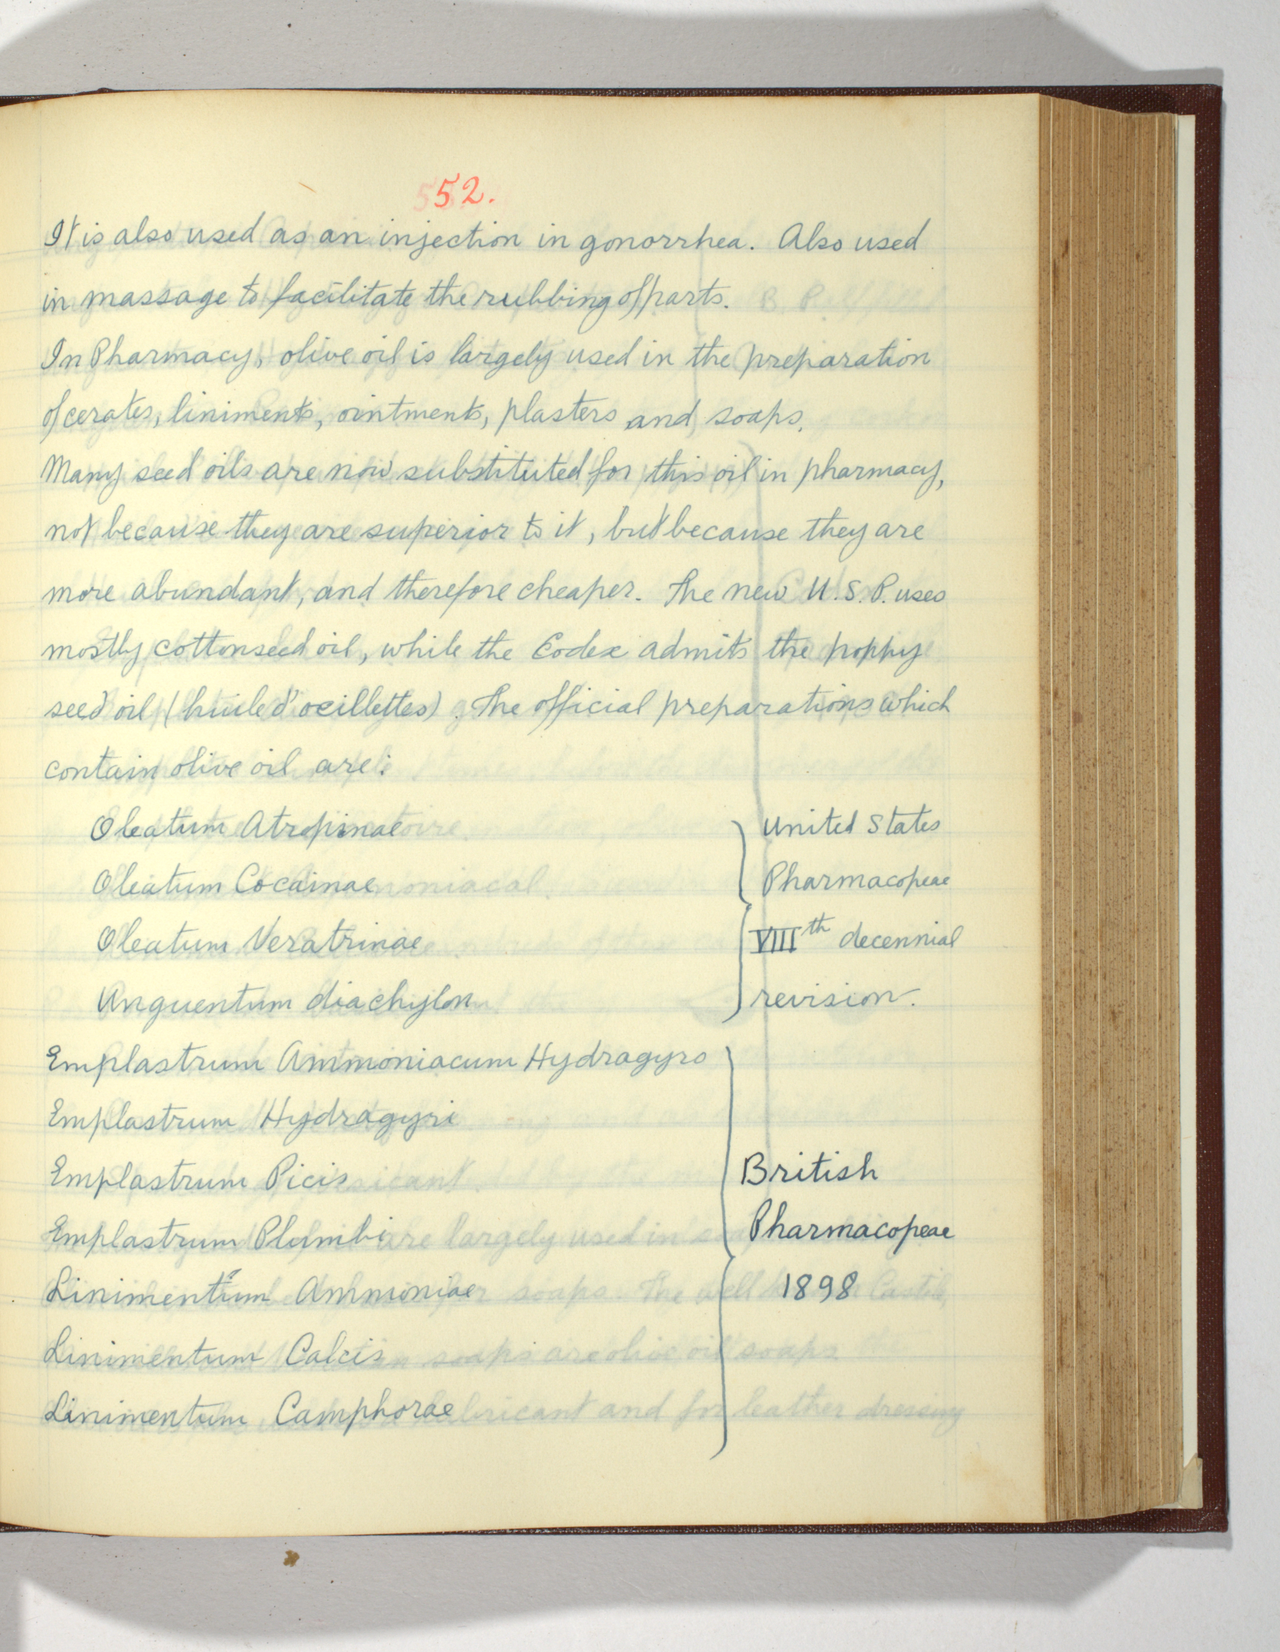 552.
It is also used as an injection in gonorrhea. Also used
in massage to facilitate the rubbing of parts.
In Pharmacy, olive oil is largely used in the preparation
of cerates, liniments, ointments, plasters and soaps.
Many seed oils are now substituted for this oil in pharmacy,
not because they are superior to it, but because they are
more abundant, and therefore cheaper. The new U.S.P. uses
mostly cottonseed oil, while the Codex admits the poppy
seed oil (huile d'oeillettes). The official preparations which
contain olive oil are:
Oleatum Atropinae
Oleatum Cocainae
Oleatum Veratrinae
Unguentum diachylon
United States
Pharmacopeae
VIIIth decennial
revision.
Emplastrum Ammoniacum Hydragyro
Emplastrum Hydragyri
Emplastrum Picis
Emplastrum Plumbi
Linimentum Ammoniae
Linimentum Calcis
Linimentum Camphorae
British
Pharmacopeae
1898